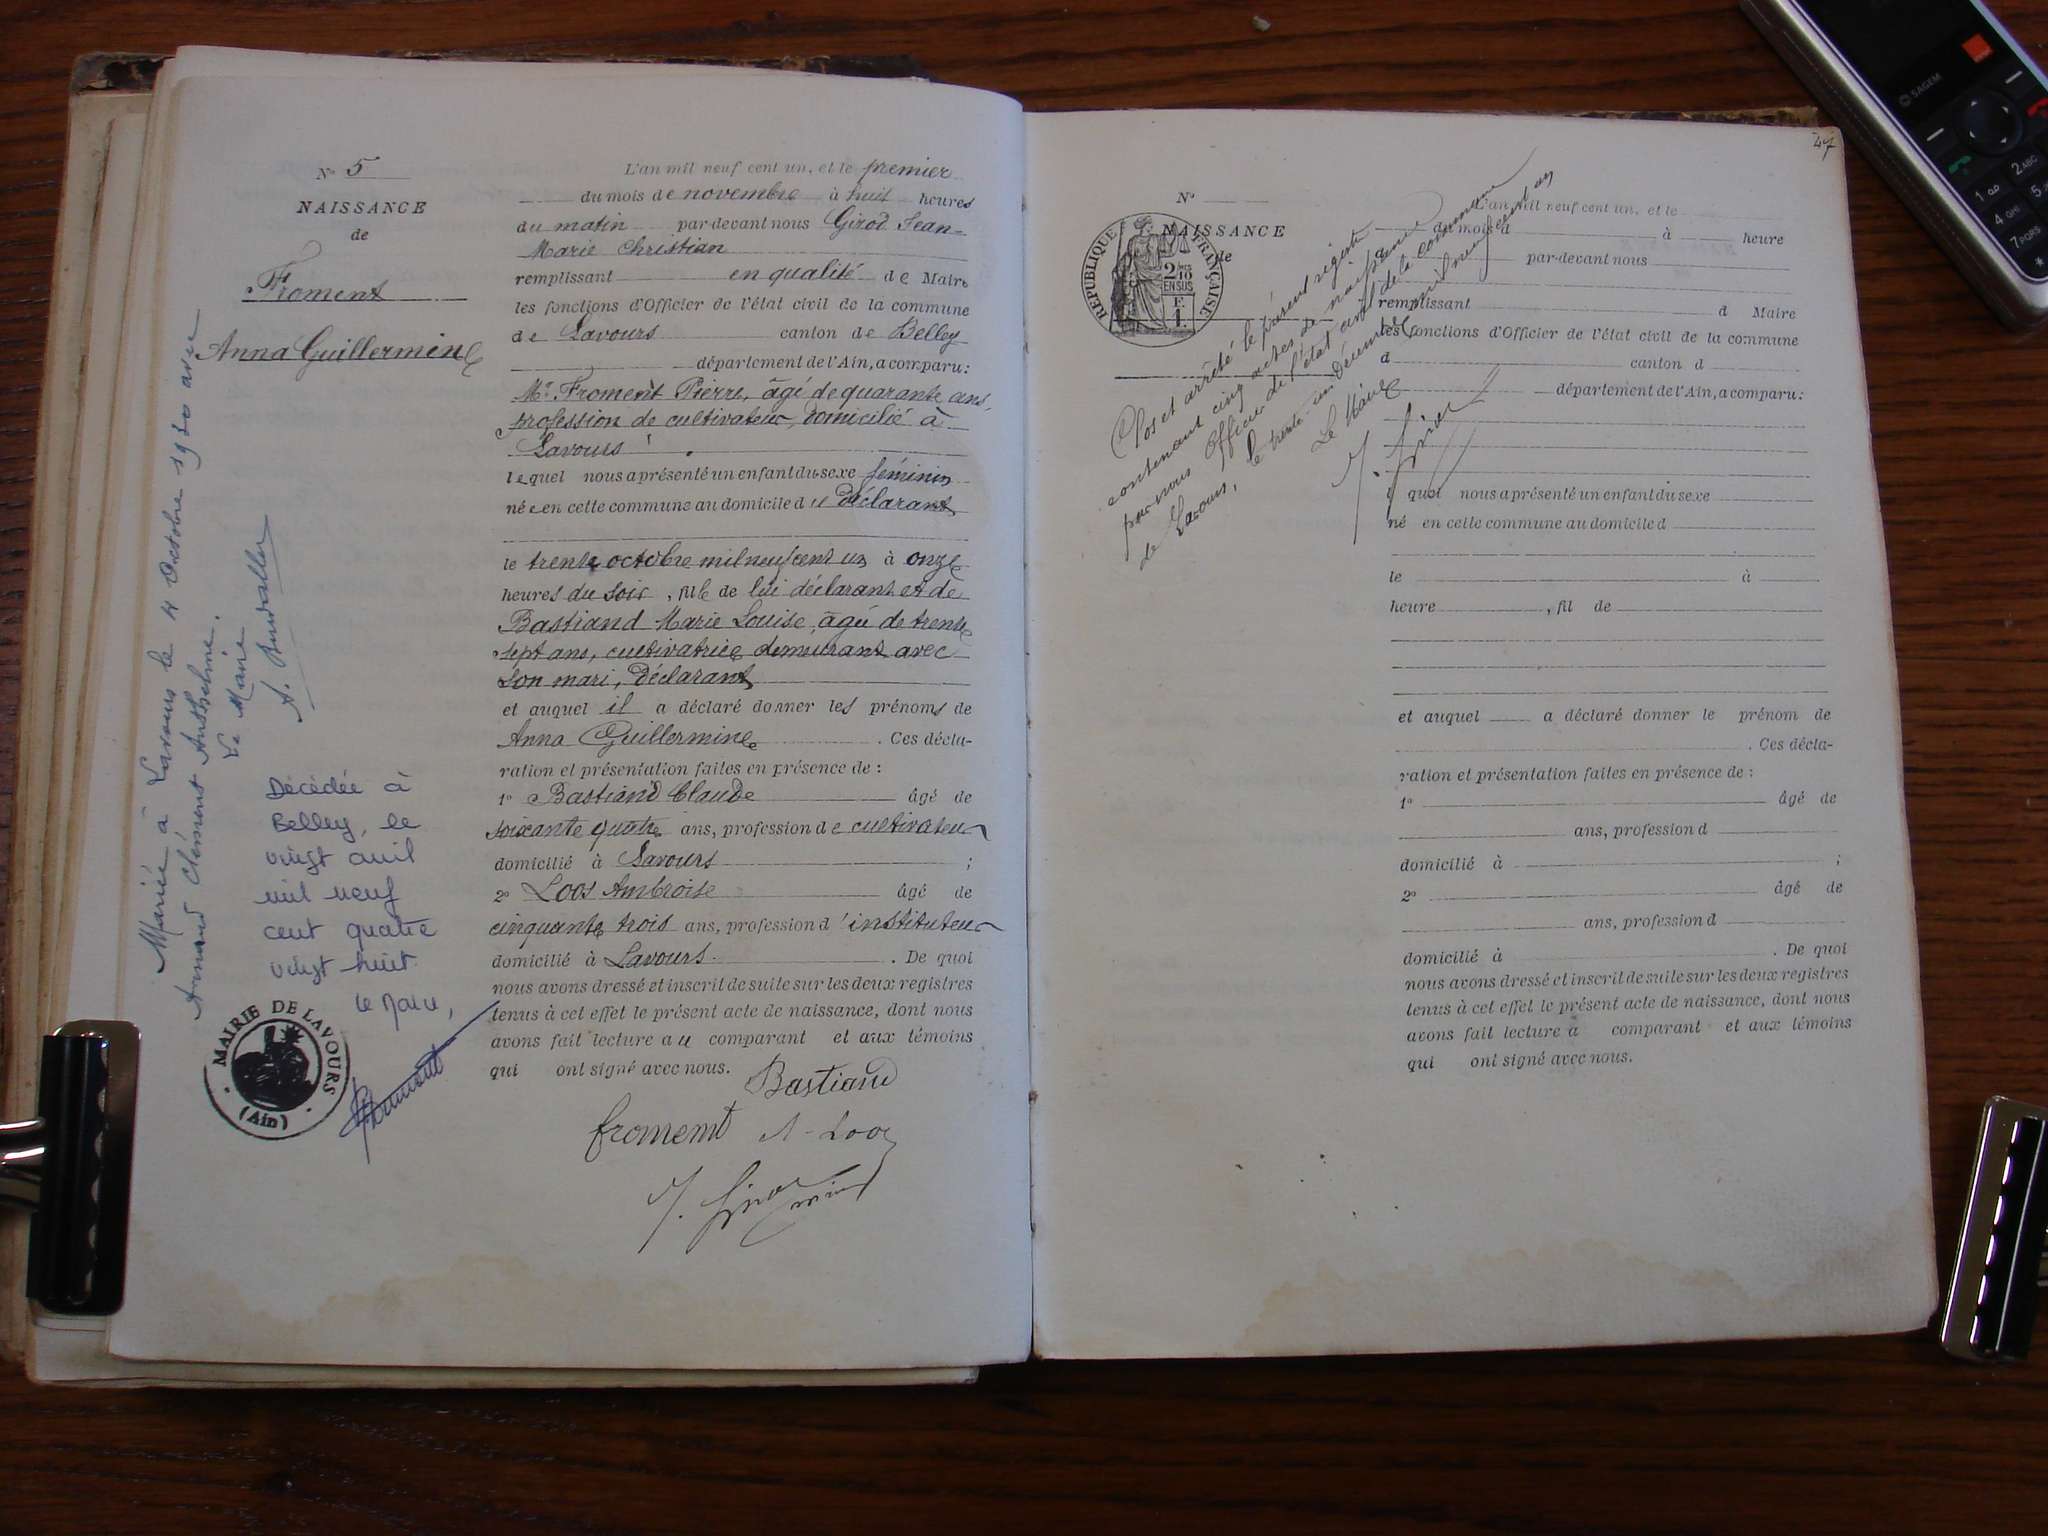 N° 5
NAISSANCE
de
Froment
Anna Guillermine
Mariée à Lavours le 4 Octobre 1920 avec
Armand Clément Anthelme.
Le Maire
Décédée à
Belley, le
vingt avril
mil neuf
cent quatre
vingt huit
Le Maire,
MAIRIE DE LAVOURS
(Ain)
L'an mil neuf cent un, et le premier
du mois de novembre à huit heures
du matin par-devant nous Girod Jean-
Marie Christian
remplissant en qualité de Maire
les fonctions d'Officier de l'état civil de la commune
de Lavours canton de Belley
département de l'Ain, a comparu:
Mr Froment Pierre, âgé de quarante ans,
profession de cultivateur, domicilié à
Lavours
lequel nous a présenté un enfant du sexe féminin
née en cette commune au domicile du déclarant
le trente octobre mil neuf cent un à onze
heures du soir, fille de lui déclarant et de
Bastiand Marie Louise, âgée de trente
sept ans, cultivatrice demeurant avec
son mari, déclarant
et auquel il a déclaré donner les prénoms de
Anna Guillermine. Ces décla-
ration et présentation faites en présence de :
1° Bastiand Claude âgé de
soixante quatre ans, profession de cultivateur
domicilié à Lavours ;
2° Loos Ambroise âgé de
cinquante trois ans, profession d'instituteur
domicilié à Lavours. De quoi
nous avons dressé et inscrit de suite sur les deux registres
tenus à cet effet le présent acte de naissance, dont nous
avons fait lecture au comparant et aux témoins
qui ont signé avec nous.
Bastiand
froment A. Loos
J. Girod
47
N°
NAISSANCE
de
REPUBLIQUE FRANÇAISE
2/10
EN SUS
F.
1.
Clos et arrêté le présent registre
contenant cinq actes de naissance
par nous Officier de l'état civil de la commune
de Lavours, le trente-un décembre mil neuf cent un
Le Maire
J. Girod
L'an mil neuf cent un, et le
du mois d à heure
par-devant nous
remplissant d Maire
les fonctions d'Officier de l'état civil de la commune
d canton d
département de l'Ain, a comparu:
quel nous a présenté un enfant du sexe
né en cette commune au domicile d
le à
heure , fil de
et auquel a déclaré donner le prénom de
. Ces décla-
ration et présentation faites en présence de :
1° âgé de
ans, profession d
domicilié à ;
2° âgé de
ans, profession d
domicilié à . De quoi
nous avons dressé et inscrit de suite sur les deux registres
tenus à cet effet le présent acte de naissance, dont nous
avons fait lecture à comparant et aux témoins
qui ont signé avec nous.
SAGEM
1
2 ABC
4 GHI
5
7 PQRS
*